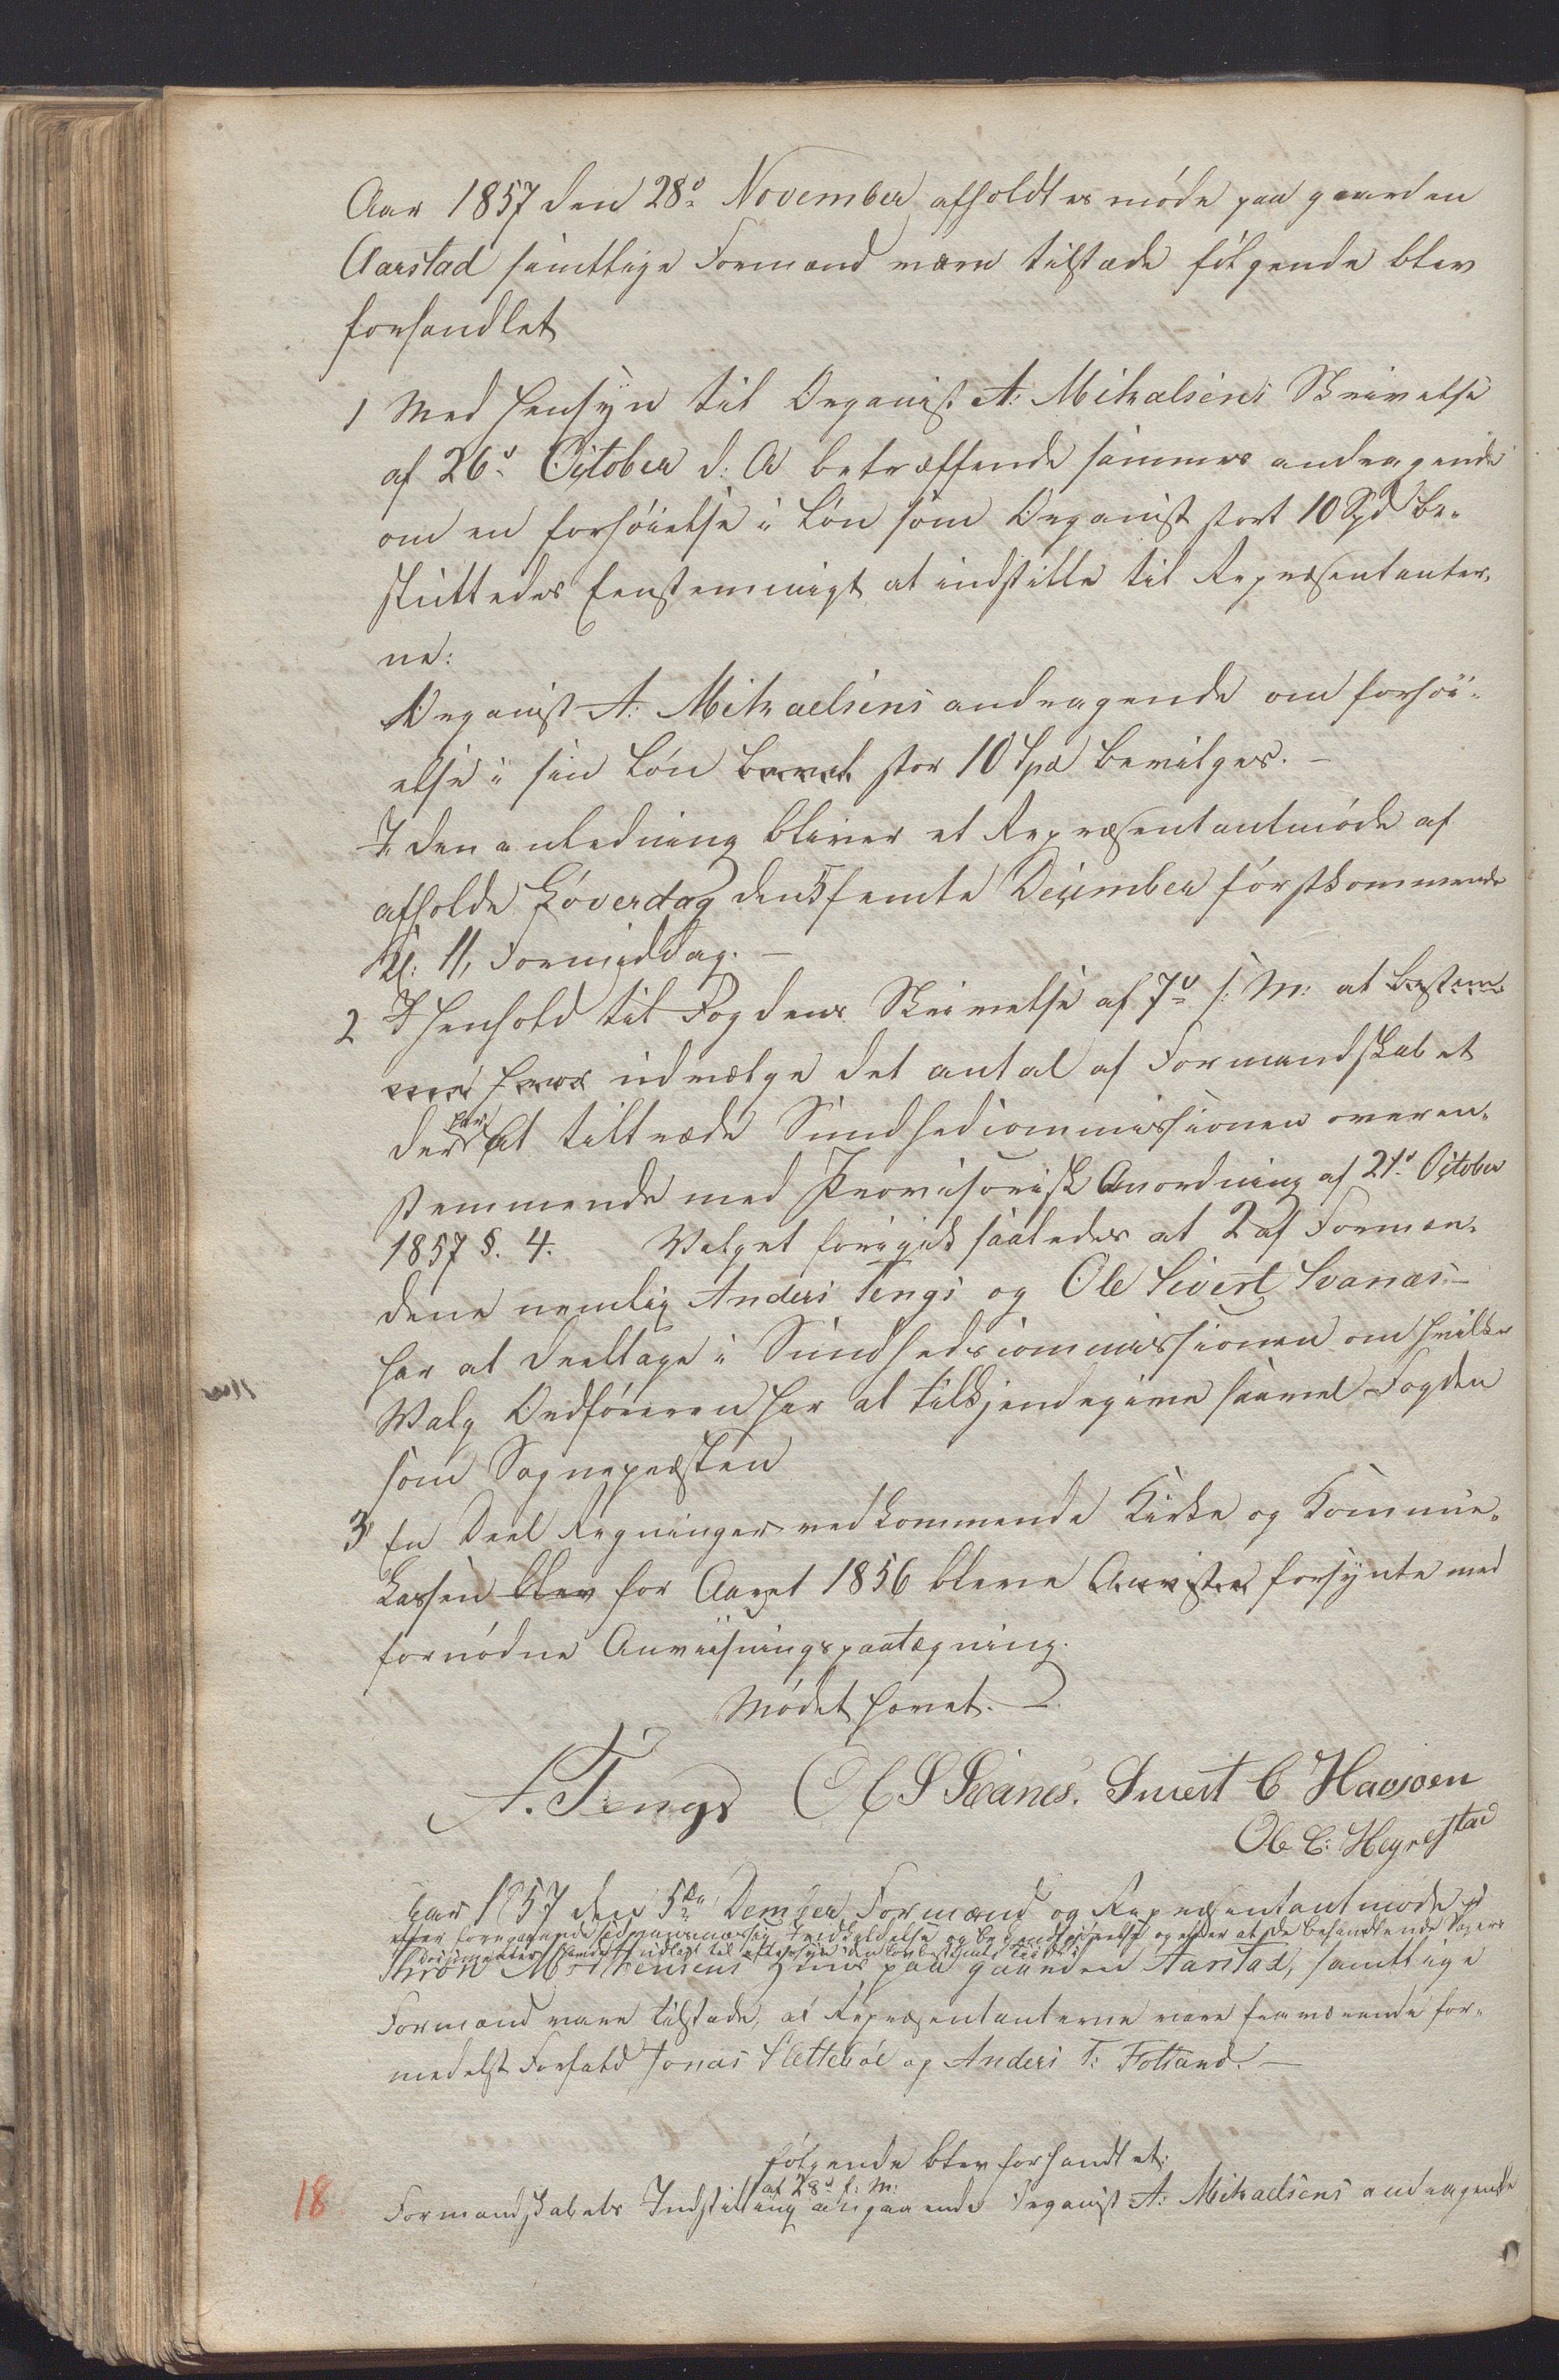 Aar 1857 den 28de November afholdtes møde paa gaarden
Aarstad samtlige Formænd vare tilstæde følgende blev
forhandlet
1 Med Hensyn til Organist A: Mikalsens Skrivelse
af 26de October d: A betræffende sammes andragende
om en forhøielse i Løn som Organist stort 10 Spd be-
sluttedes Eenstemmigt at indstille til Repræsentanter-
ne:
Organist A: Mikaelsens andragende om forhøi-
else i sin Løn stor 10 Spd bevilges. –
I den anledning bliver et Repræsentantmøde af
afholde Løverdag den 5 femte December førstkommende
Kl: 11, Formiddag. –
2 I Henhold til Fogdens Skrivelse af 7de f: M: at bestem-
me udvælge det antal af Formandskabet
der har at tiltræde Sundhedcommissionen overen-
stemmende med Provisorisk Anordning af 21de October
1857 §. 4. Valget foregik saaledes at 2 af Formæn-
dene nemlig Anders Tengs og Ole Sivert Svanæs –
har at deeltage i Sundhedscommissionen om hvilke
Valg Ordføreren har at tilkjendegive saavel Fogden
som Sognepræsten
3 En Deel Regninger vedkommende Kirke og Commue-
kassen blev for Aaret 1856 bleve Anviste forsynte med
fornødne Anviisningspaategning.
Mødet hævet. –
A. Tengs O S Svanes. Sivert C Havsøen
Ole C: Hegrestad
Aar 1857 den 5te Dember Formænd og Repræsentantmøde
efter foregaaende sædvansmæssig Indkaldelse og bekjendtgjørelse og efter at de behandlende Sagers
Documenter havde udlagt til eftersyn den lovbestemte Tid
Mortensens Huus paa gaarden Aarstad, samtlige
Formænd vare tilstæde, af Repræsentanterne vare fraværende for-
medelst Forfald Jonas Slettebøe og Anders T: Fotland. –
følgende blev forhandlet:
af 28de f: M:
18 Formandskabets Indstilling angaaende Organist A: Mikaelsens andragende